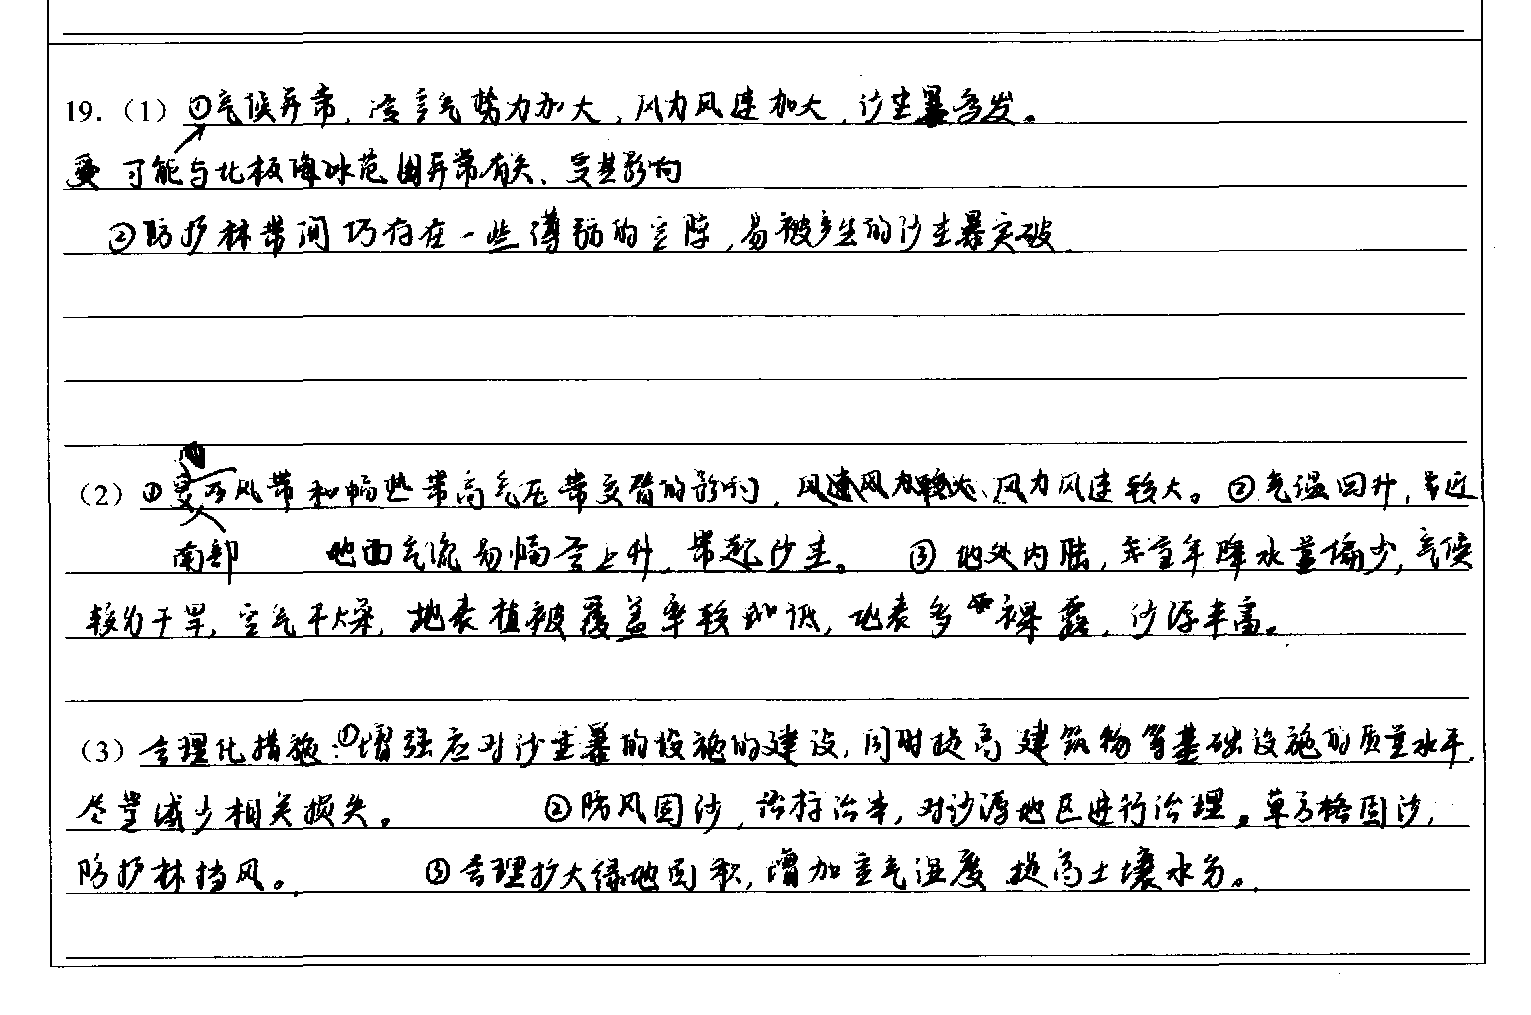 19.（1）①气候异常，冷空气势力加大，风力风速加大，沙尘暴多发。
可能与北极海冰范围异常有关、受其影响
②防护林带间巧存在一些薄弱的空阵，易被产生的沙尘暴突破
（2）①受西风带和副热带高气压带交替的影响，风力风速较大。②气温回升，靠近
南部 地面气流易幅合上升，带起沙尘。 ③地处内陆，年降水量偏少，气候
较为干旱，空气干燥，地表植被覆盖率较低，地表多裸露，沙源丰富。
（3）合理化措施：①增强应对沙尘暴的设施的建设，同时提高建筑物等基础设施的质量水平，
尽量减少相关损失。 ②防风固沙，治标治本，对沙源地区进行治理。草方格固沙，
防护林挡风。 ③合理扩大绿地面积，增加空气湿度 提高土壤水分。